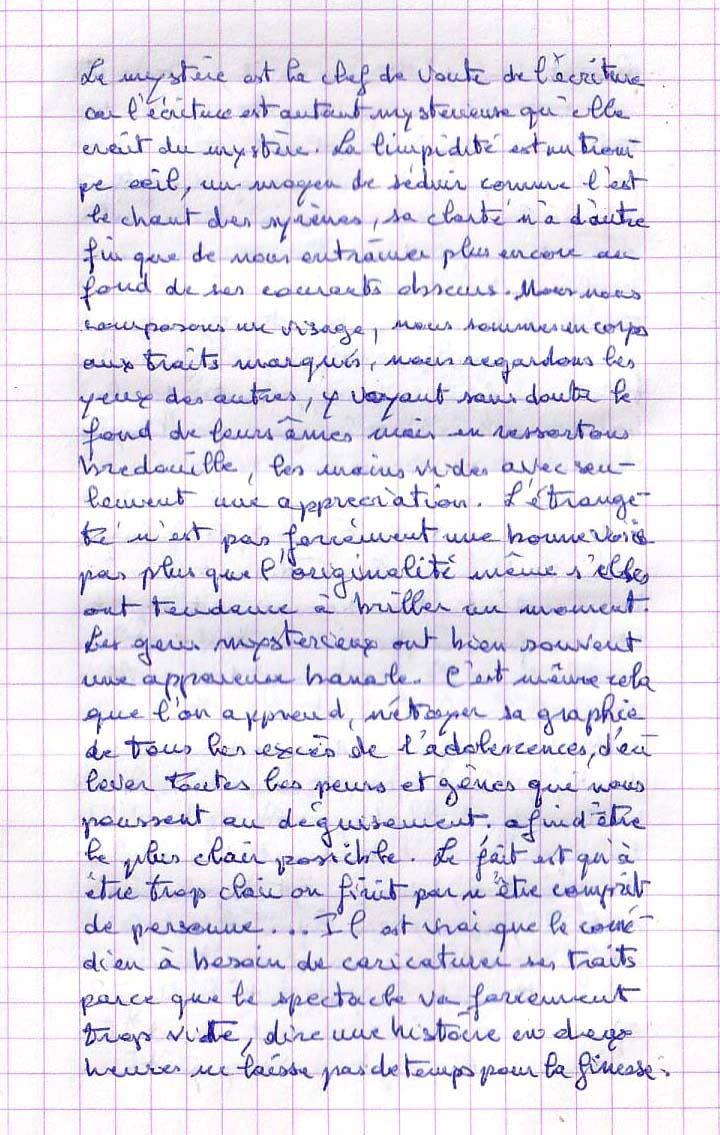 Le mystère est la clef de voute de l'écriture
car l'écriture est autant mysterieuse qu'elle
croit du mystère. La limpidité est un trom
pe oeil, un moyen de séduir comme l'est
le chant des syrènes, sa clarté n'a d'autre
fin que de nous entraîner plus encore au
fond de ses courants obscurs. Nous nous
composons un visage, nous sommes un corps
aux traits marqués, nous regardons les
yeux des autres, y voyant sans doute le
fond de leurs âmes mais en ressortons
bredouille, les mains vides avec seu-
lement une appreciation. L'étrange-
té n'est pas forcément une bonne voie
pas plus que l'originalité même s'elles
ont tendance à briller un moment.
Les gens mysterieux ont bien souvent
une apparence banale. C'est même cela
que l'on apprend, nétoyer sa graphie
de tous les excès de l'adolescences, d'en
lever toutes les peurs et gênes qui nous
poussent au déguisement, afin d'être
le plus clair possible. Le fait est qu'à
être trop clair on finit par n'être comprit
de personne... Il est vrai que le comé-
dien à besoin de caricaturer ses traits
parce que le spectacle va forcement
trop vite, dire une histoire en deux
heures ne laisse pas de temps pour la finesse.